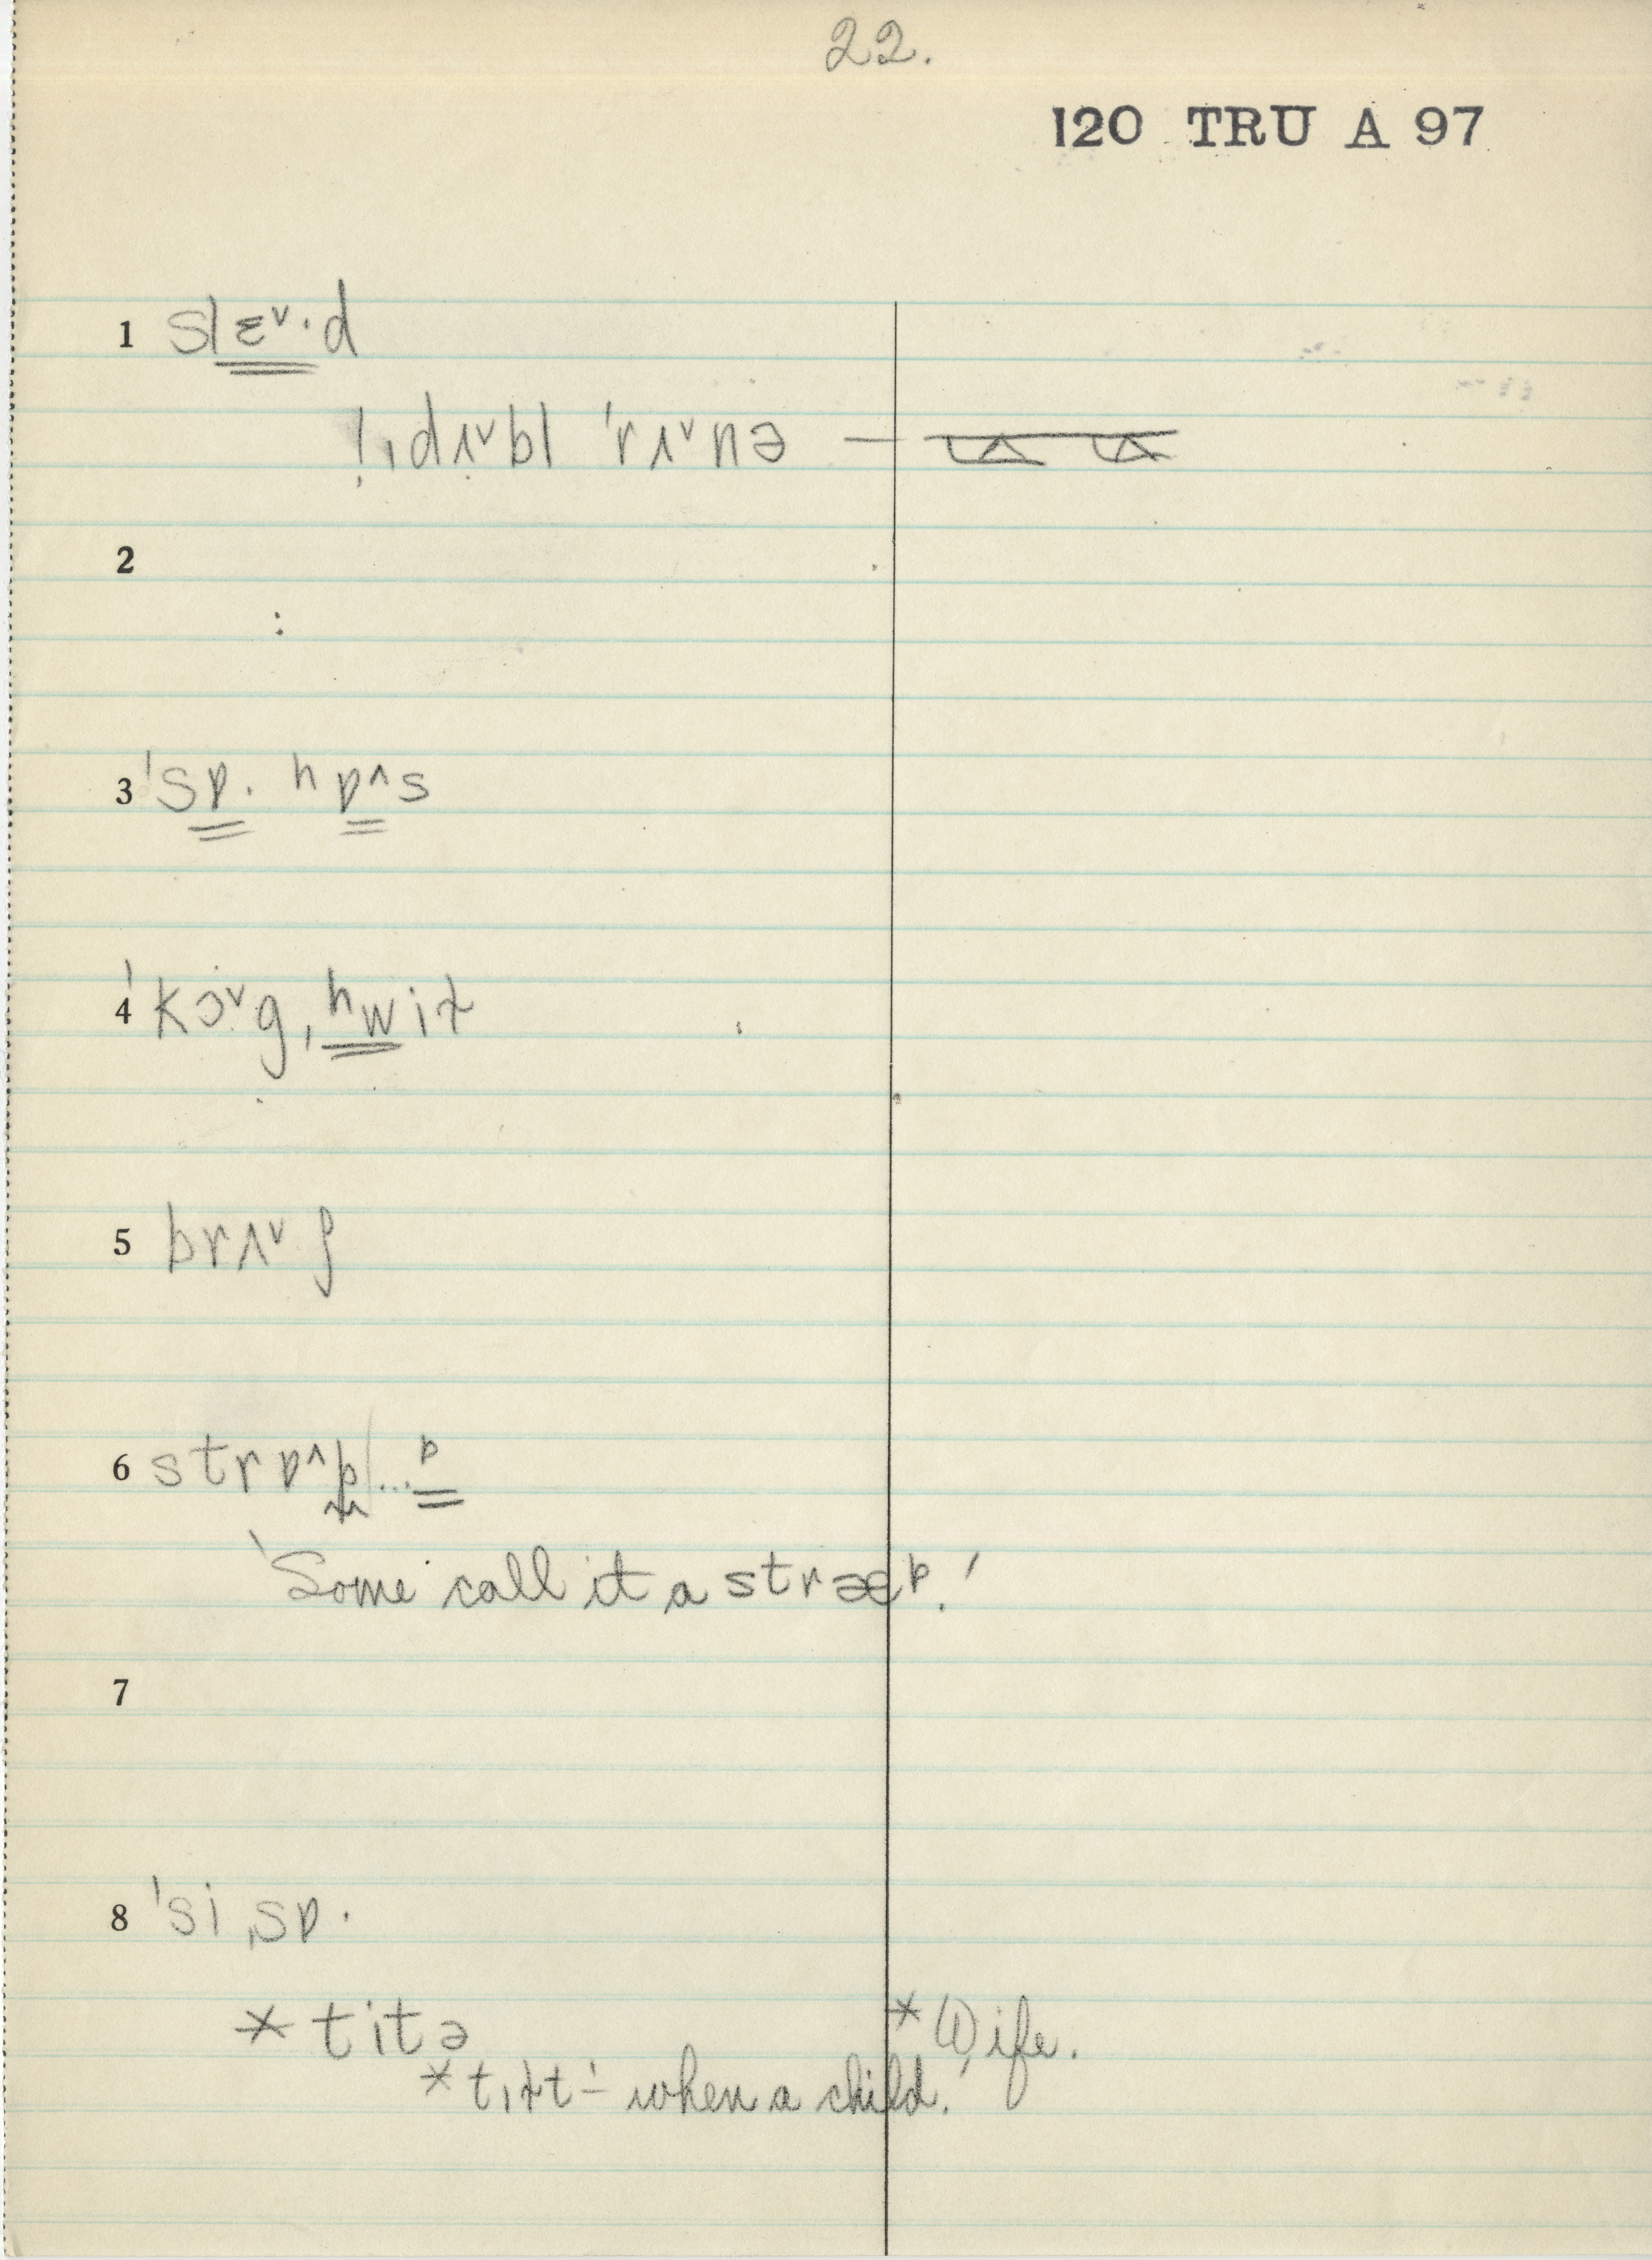 22.
120 TRU A 97
1 slɛ˅·d
!ˌdʌ˅bl ˈrʌ˅nə —
2
:
3 ˈsɒ· hɒ^s
4 ˈkɔ˅gˌhwit
5 brʌ˅ʃ
6 strɒ^p/...p
'Some call it a stræp.'
7
8 ˈsiˌsɒ·
* titə * Wife.
* tɪlt' - when a child.'